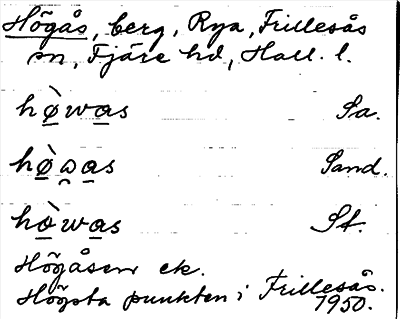 Högås, berg, Rya, Frillesås
sn, Fjäre hd, Hall. l.
hø̠̀wa̠s Sa.
hø̠̀ɷ̯a̠s Sand.
hò̠wa̠s St.
Högåsen ek.
Högsta punkten i Frillesås.
1950.